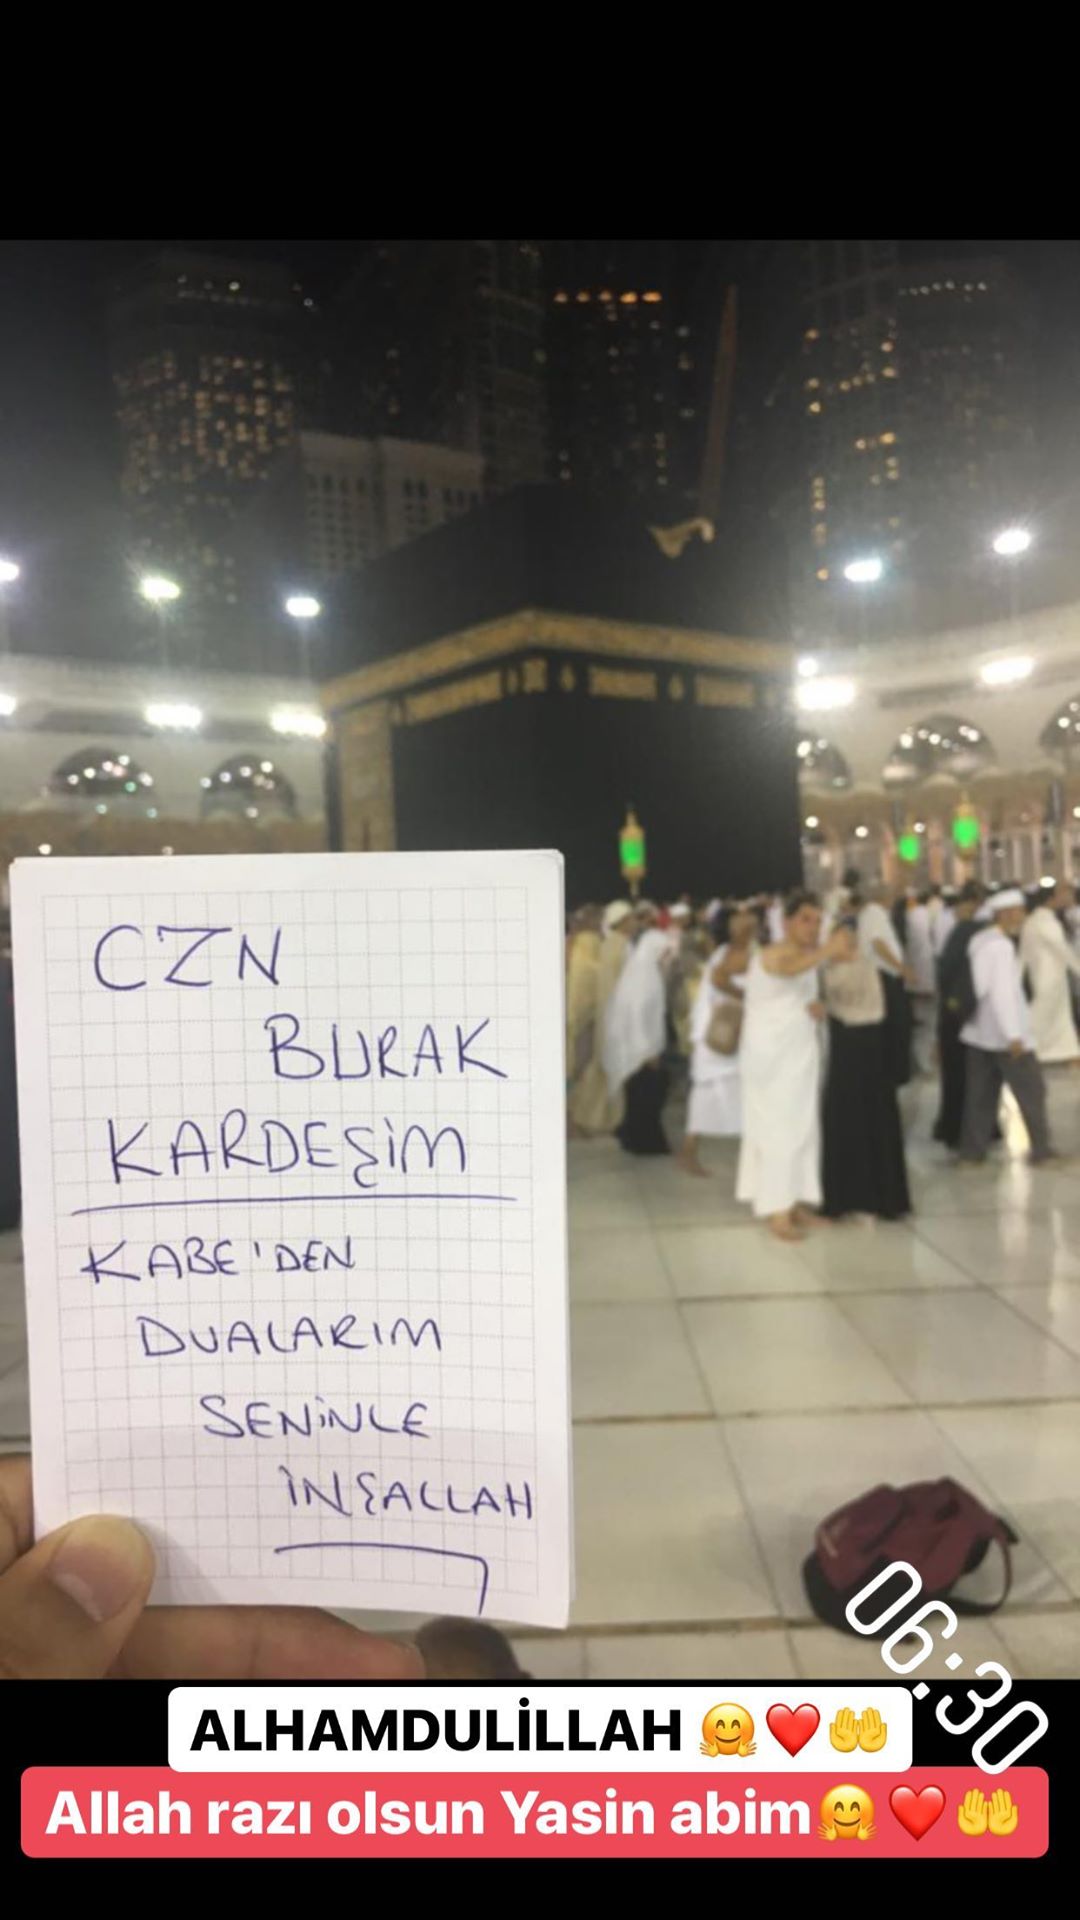 CZN
BURAK
KARDEŞİM
KABE'DEN
DUALARIM
SENİNLE
İNŞALLAH
06:30
ALHAMDULİLLAH 🤗❤️🤲
Allah razı olsun Yasin abim🤗❤️🤲